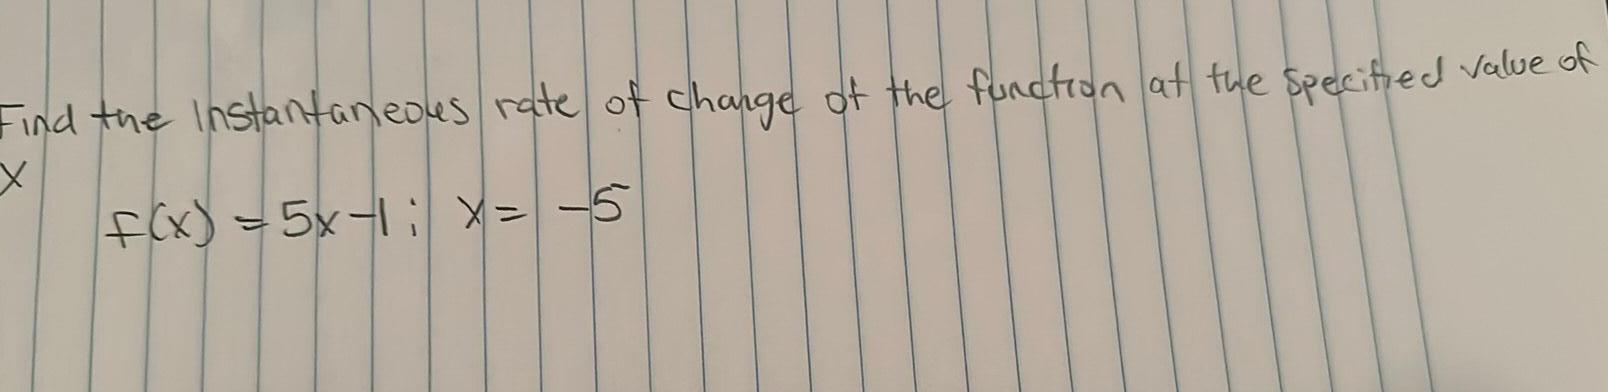 Find the instantaneous rate of change of the function at the specified value of
x
f(x) = 5x-1; x = -5